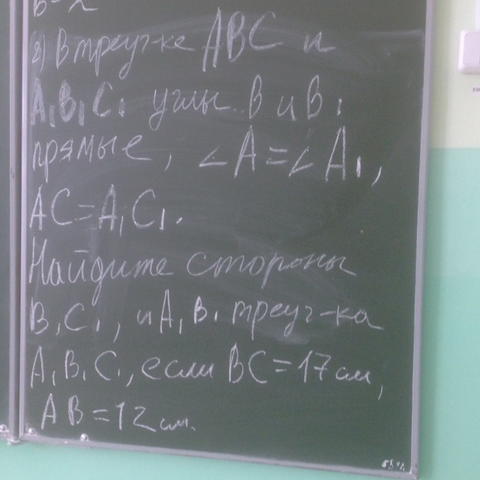 2) В треуг-ке ABC и
A₁B₁C₁ углы B и B₁
прямые, ∠A=∠A₁,
AC=A₁C₁.
Найдите стороны
B₁C₁, и A₁B₁ треуг-ка
A₁B₁C₁, если BC=17см,
AB=12см.